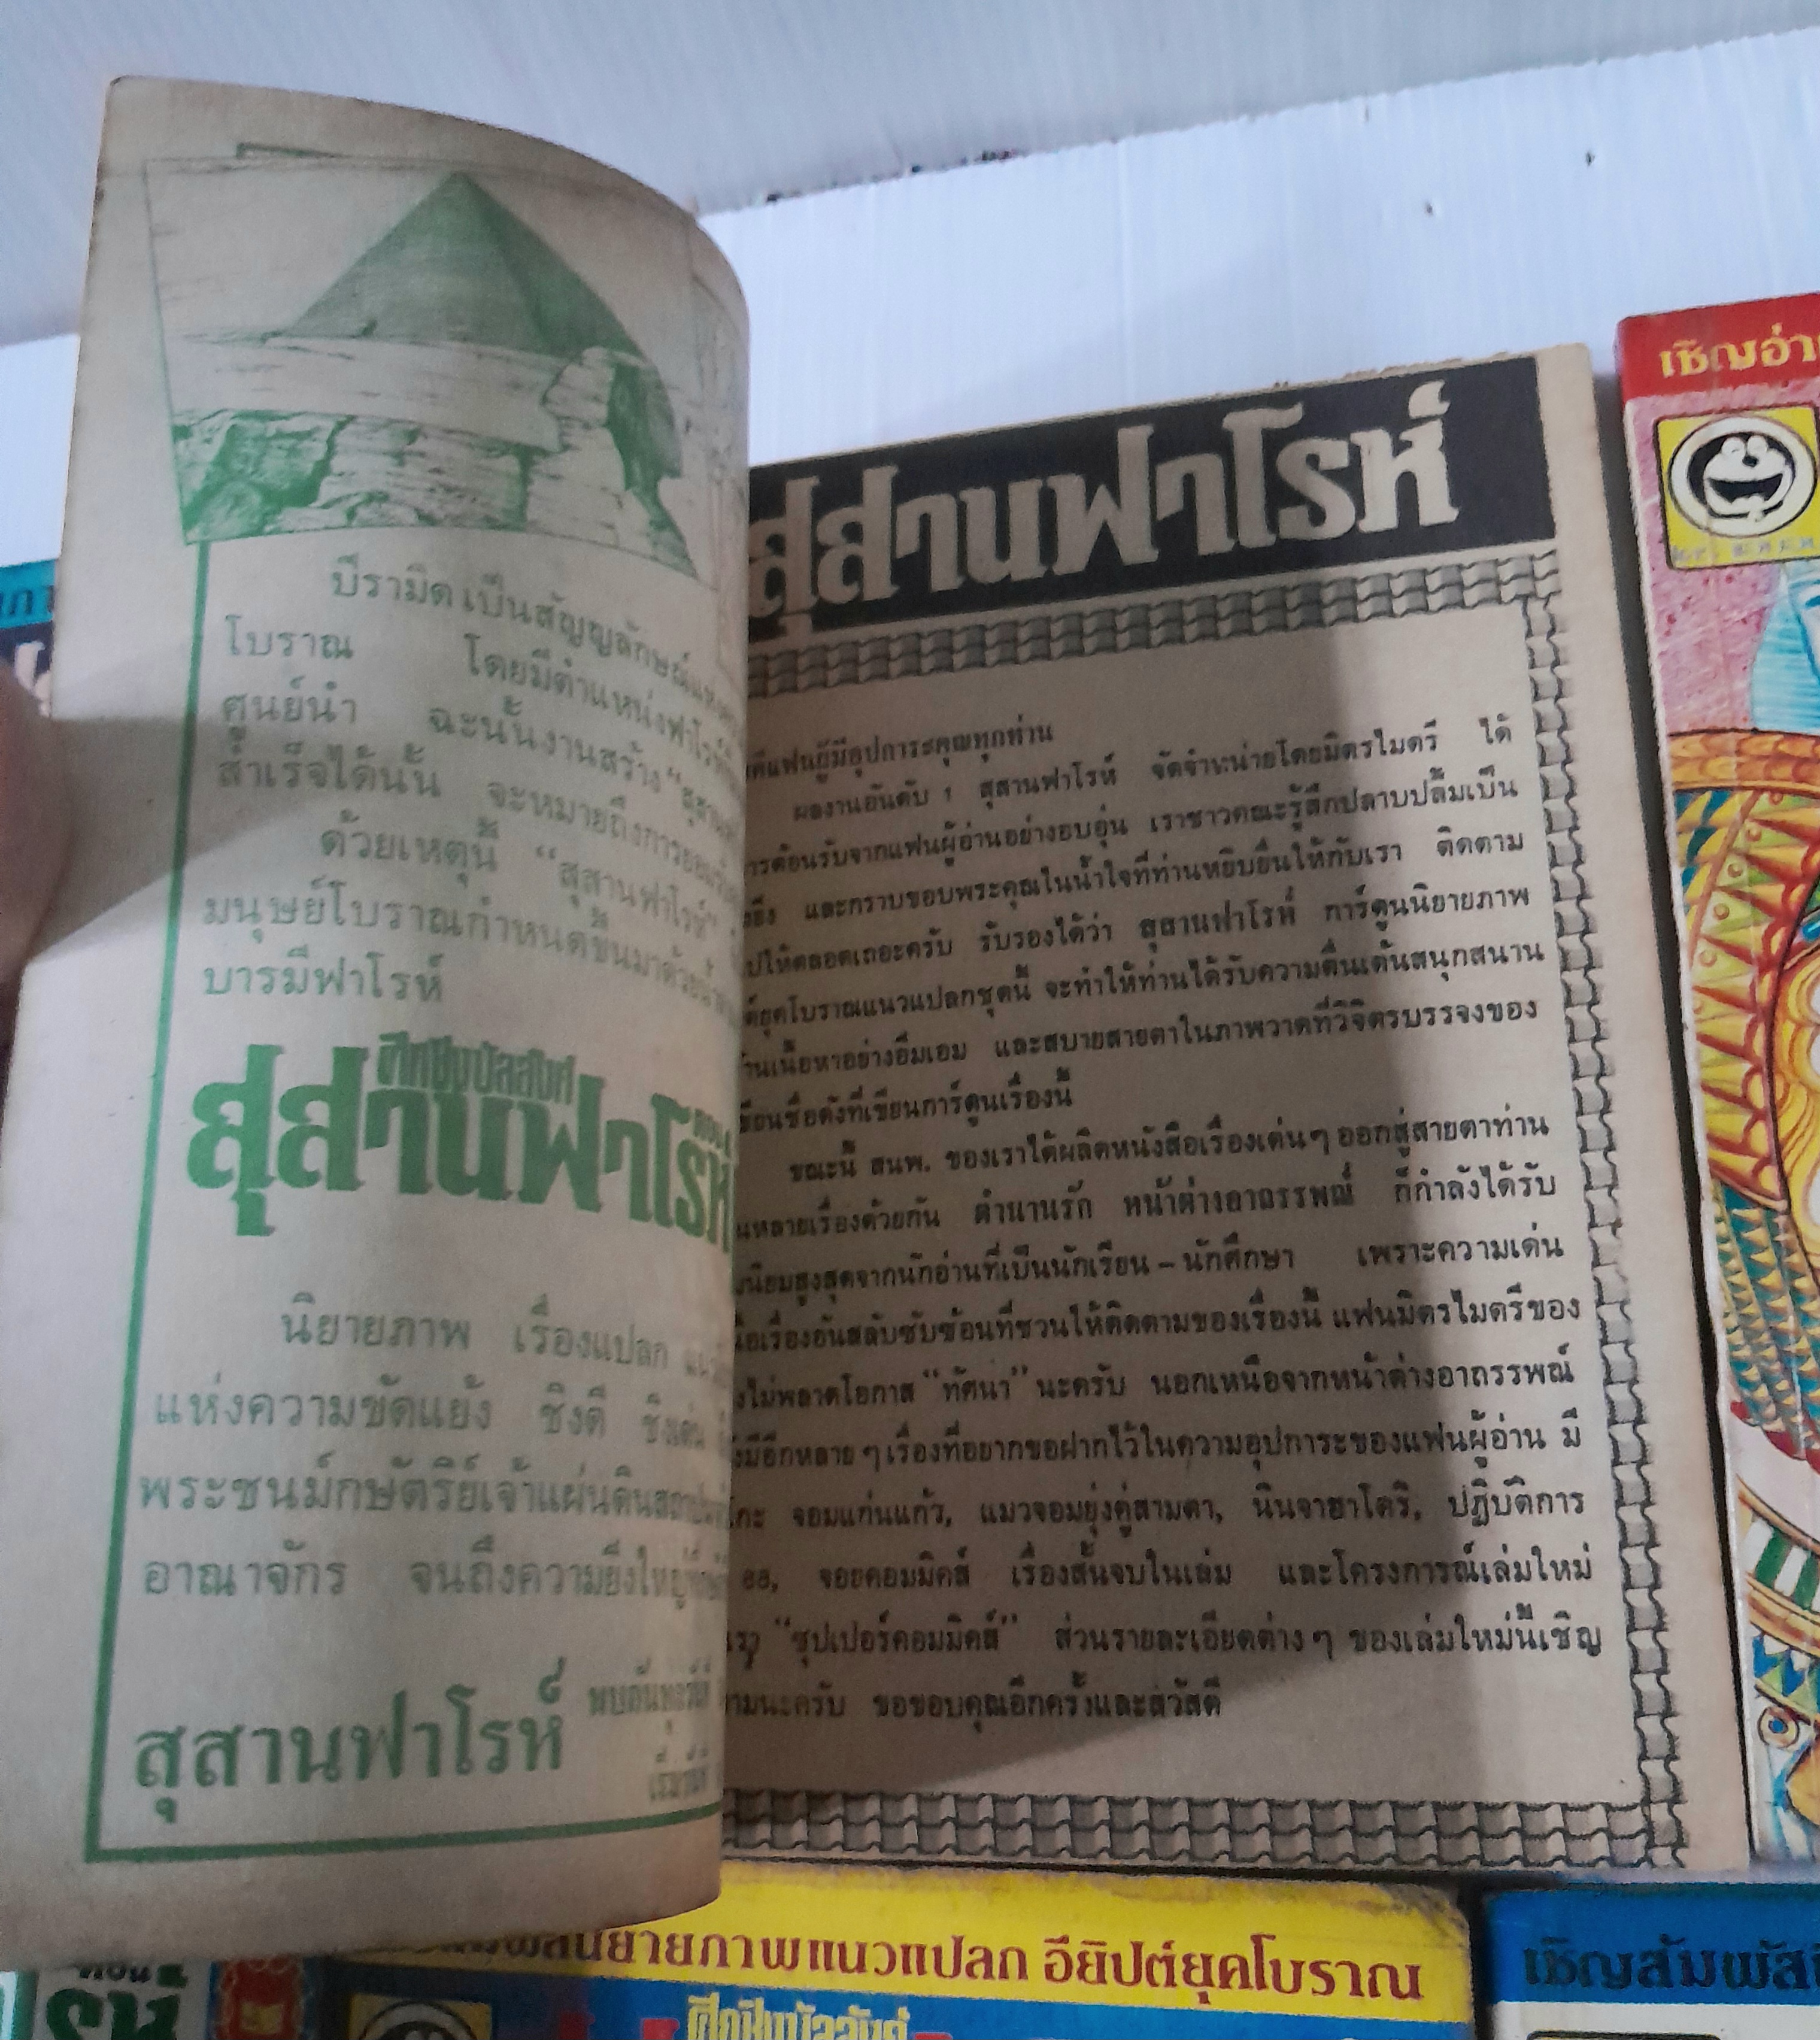 ปีรามิดเป็นสัญญลักษณ์แห่ง
โบราณ โดยมีตำแหน่งฟาโรห์
ศูนย์นำ ฉะนั้นงานสร้าง "สุสาน
สำเร็จได้นั้น จะหมายถึงการยอมรับ
ด้วยเหตุนี้ "สุสานฟาโรห์"
มนุษย์โบราณกำหนดขึ้นมาด้วย
บารมีฟาโรห์
ศึกชิงบัลลังก์
สุสานฟาโรห์
นิยายภาพ เรื่องแปลก
แห่งความขัดแย้ง ชิงดี ชิงเด่น
พระชนม์กษัตริย์เจ้าแผ่นดิน
อาณาจักร จนถึงความยิ่งใหญ่
สุสานฟาโรห์
สุสานฟาโรห์
แฟนผู้มีอุปการะคุณทุกท่าน
ผลงานอันดับ 1 สุสานฟาโรห์ จัดจำหน่ายโดยมิตรไมตรี ได้
การต้อนรับจากแฟนผู้อ่านอย่างอบอุ่น เราชาวคณะรู้สึกปลาบปลื้มเป็น
และกราบขอบพระคุณในน้ำใจที่ท่านหยิบยื่นให้กับเรา ติดตาม
ไปให้ตลอดเถอะครับ รับรองได้ว่า สุสานฟาโรห์ การ์ตูนนิยายภาพ
ยุคโบราณแนวแปลกชุดนี้ จะทำให้ท่านได้รับความตื่นเต้นสนุกสนาน
ด้านเนื้อหาอย่างอิ่มเอม และสบายสายตาในภาพวาดที่วิจิตรบรรจงของ
เขียนชื่อดังที่เขียนการ์ตูนเรื่องนี้
ขณะนี้ สนพ. ของเราได้ผลิตหนังสือเรื่องเด่นๆ ออกสู่สายตาท่าน
หลายเรื่องด้วยกัน ตำนานรัก หน้าต่างอาถรรพณ์ ก็กำลังได้รับ
นิยมสูงสุดจากนักอ่านที่เป็นนักเรียน – นักศึกษา เพราะความเด่น
เรื่องอันสลับซับซ้อนที่ชวนให้ติดตามของเรื่องนี้ แฟนมิตรไมตรีของ
ไม่พลาดโอกาส "ทัศนา" นะครับ นอกเหนือจากหน้าต่างอาถรรพณ์
มีอีกหลายๆ เรื่องที่อยากขอฝากไว้ในความอุปการะของแฟนผู้อ่าน มี
จอมแก่นแก้ว, แมวจอมยุ่งคู่สามตา, นินจาฮาโตริ, ปฏิบัติการ
จอยคอมมิคส์ เรื่องสั้นจบในเล่ม และโครงการณ์เล่มใหม่
เรา "ซุปเปอร์คอมมิคส์" ส่วนรายละเอียดต่างๆ ของเล่มใหม่นี้เชิญ
นะครับ ขอขอบคุณอีกครั้งและสวัสดี
เชิญอ่าน
นิยายภาพแนวแปลก อียิปต์ยุคโบราณ
ศึกชิงบัลลังก์
เชิญสัมผัส